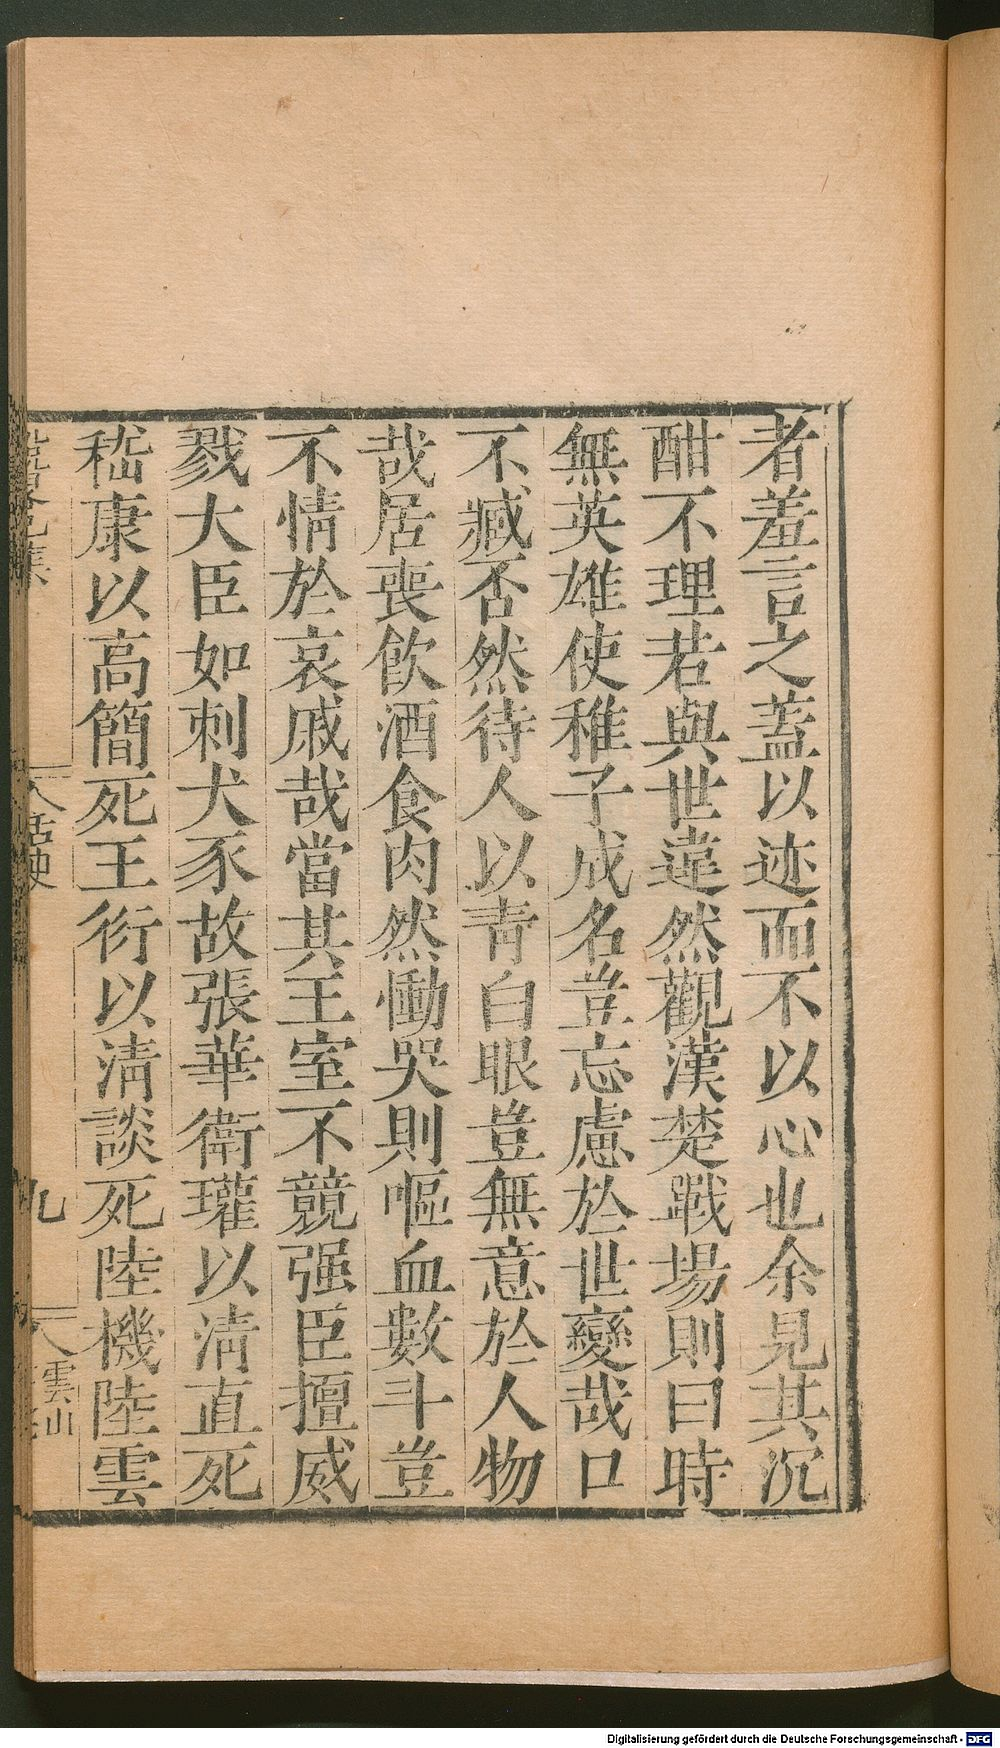 者羞言之蓋以迹而不以心也余見其沉
酣不理若與世違然觀漢楚戰場則曰時
無英雄使稚子成名豈忘慮於世變哉口
不臧否然待人以靑白眼豈無意於人物
哉居喪飮酒食肉然慟哭則嘔血數斗豈
不情於哀戚哉當其王室不競强臣擅威
戮大臣如刺犬豕故張華衛瓘以淸直死
嵇康以高簡死王衍以淸談死陸機陸雲
九
雲山
Digitalisierung gefördert durch die Deutsche Forschungsgemeinschaft - DFG